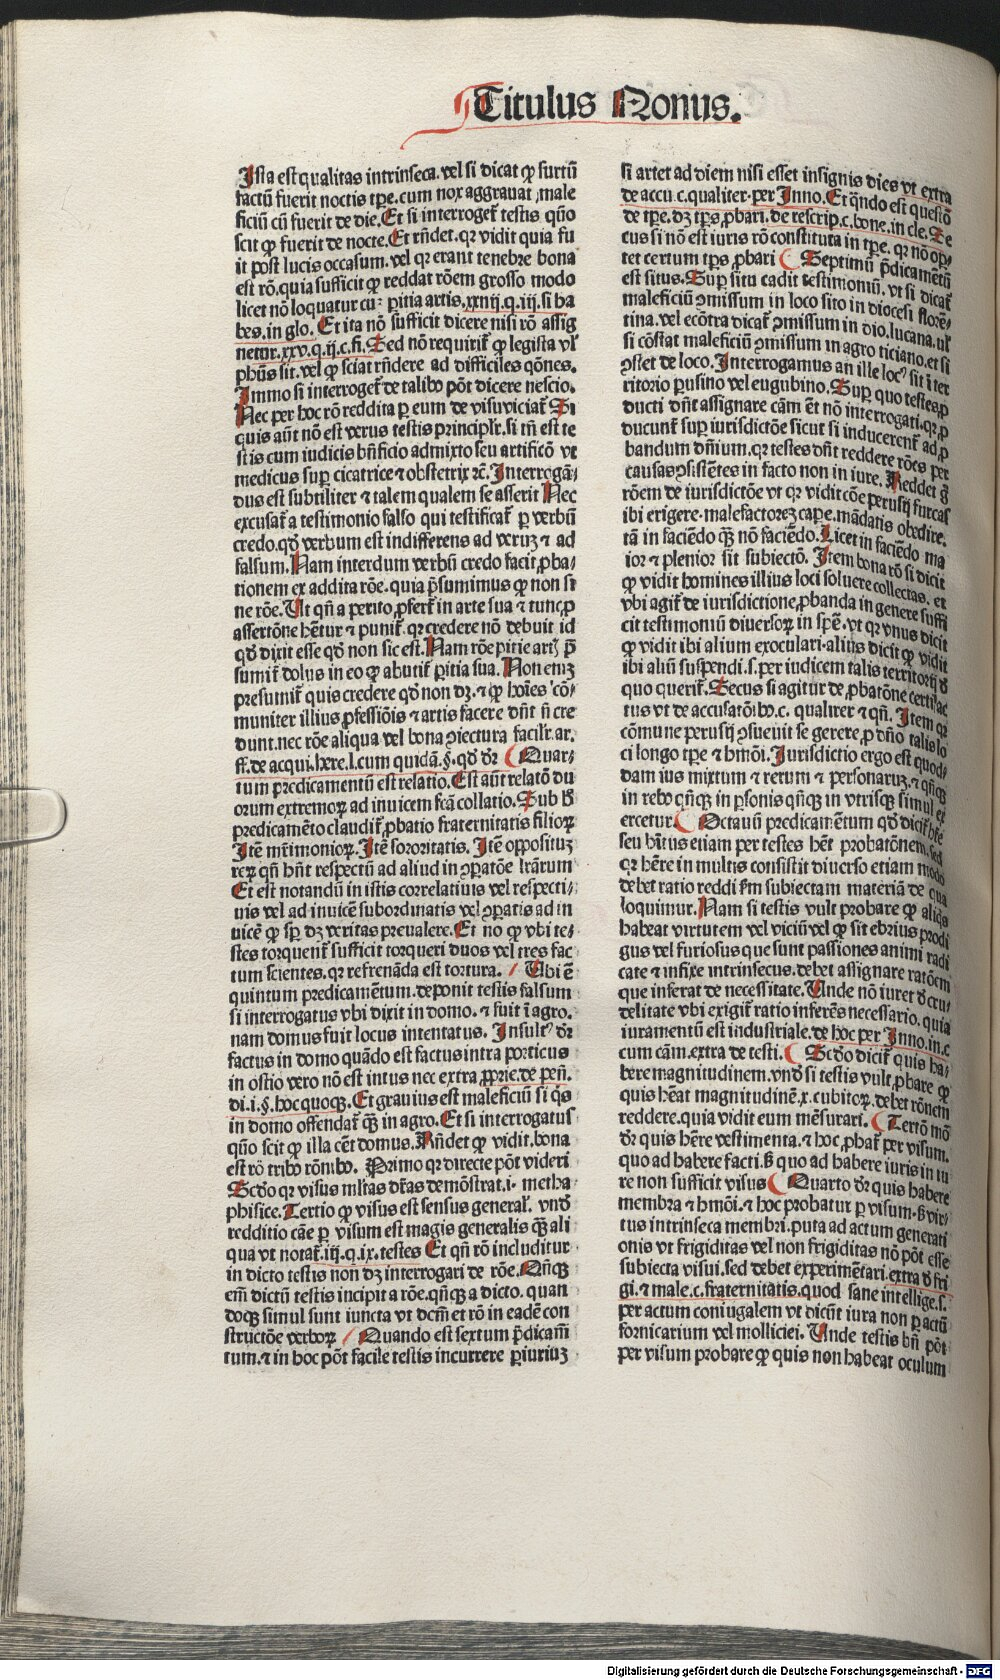 Titulus Nonus.
Ista est qualitas intrinseca. vel si dicat ꝙ furtū
factū fuerit noctis tp̄e. cum nox aggrauat male
ficiū cū fuerit de die. Et si interroget̄ testis quō
scit ꝙ fuerit de nocte. Et rn̄det. qꝛ vidit quia fu
it post lucis occasum. vel qꝛ erant tenebre bona
est rō. quia sufficit ꝙ reddat rōem grosso modo
licet nō loquatur cuꝫ ꝑitia artis. xxnij. q. iij. si ha
bes. in glo. Et ita nō sufficit dicere nisi rō assig
netur. xxv. q. ij. c. fi. Sed nō requirit̄ ꝙ legista vl̓
ph̄us sit. vel ꝙ sciat rn̄dere ad difficiles qōnes.
Immo si interroget̄ de talibꝰ pōt dicere nescio.
Nec per hoc rō reddita ꝑ eum de visu viciat̄ Si
quis aūt nō est verus testis principlr̄. si tn̄ est te
stis cum iudicis bn̄ficio admixto seu artificō vt
medicus suꝑ cicatrice ⁊ obstetrix ⁊c̄. Interrogā⸗
dus est subtiliter ⁊ talem qualem se asserit Nec
excusat̄ a testimonio falso qui testificat̄ ꝑ verbū
credo. qd̓ verbum est indifferens ad veruꝫ ⁊ ad
falsum. Nam interdum verbū credo facit ꝓba⸗
tionem ex addita rōe. quia p̄sumimus ꝙ non si
ne rōe. Ut qn̄ a perito ꝓfert̄ in arte sua ⁊ tunc ꝓ
assertōne hētur ⁊ punit̄. qꝛ credere nō debuit id
qd̓ dixit esse qd̓ non sic est. Nam rōe pitie artꝭ p̄
sumit̄ dolus in eo ꝙ abutit̄ ꝑitia sua. Non eniꝫ
presumit̄ quis credere qd̓ non dꝫ. ⁊ ꝙ hoīes cō⸗
muniter illius ꝓfessiōis ⁊ artis facere dn̄t n̄ cre
dunt. nec rōe aliqua vel bona ꝯiectura facilr̄. ar.
ff. de acqui. here. l. cum quidā. §. qd̓ dr̄ Quar⸗
tum predicamentū est relatio. Est aūt relatō du
orum extremoꝝ ad inuicem fc̄a collatio. Sub h̓
predicamēto claudit̄ ꝓbatio fraternitatis filioꝝ
Itē mr̄imonioꝝ. Itē sororitatis. Itē oppositūꝫ
reꝝ qn̄ hn̄t respectū ad aliud in ꝯpatōe lr̄arum
Et est notandū in istis correlatiuis vel respecti⸗
uis vel ad inuicē subordinatis vel ꝯpatis ad in
uicē ꝙ sꝑ dꝫ veritas preualere. Et no ꝙ vbi te⸗
stes torquent̄ sufficit torqueri duos vel tres fac
tum scientes. qꝛ refrenāda est tortura. Ubi ē
quintum predicamētum. deponit testis falsum
si interrogatus vbi dixit in domo. ⁊ fuit ī agro.
nam domus fuit locus intentatus. Insultꝰ dr̄
factus in domo quādo est factus intra porticus
in ostio vero nō est intus nec extra ꝓprie. de pen̄.
di. i. §. hoc quoqꝫ. Et grauius est maleficiū si qͥs
in domo offendat̄ qꝫ in agro. Et si interrogatus
quō scit ꝙ illa cēt domus. Rn̄det ꝙ vidit. bona
est rō tribꝰ rōnibꝰ. Primo qꝛ directe pōt videri
Scd̓o qꝛ visus ml̓tas dr̄as demōstrat. i. metha⸗
phisice. Tertio ꝙ visus est sensus general̓. vnd̓
redditio cāe ꝑ visum est magis generalis qꝫ ali
qua vt notat̄. iij. q. ix. testes Et qn̄ rō includitur
in dicto testis non dꝫ interrogari de rōe. Qn̄qꝫ
em̄ dictū testis incipit a rōe. qn̄qꝫ a dicto. quan
doqꝫ simul sunt iuncta vt dcm̄ et rō in eadē con
structōe verboꝝ Quando est sextum p̄dicam̄
tum. ⁊ in hoc pōt facile testis incurrere ꝑiuriuꝫ
si artet ad diem nisi esset insignis dies vt extra
de accu. c. qualiter. per Inno. Et qn̄do est questō
de tp̄e. dꝫ tp̄s ꝓbari. de rescrip. c. bone. in cle. Se
cus si nō est iuris rō constituta in tp̄e. qꝛ nō opꝫ⸗
tet certum tp̄s ꝓbari Septimū p̄dicamētū
est situs. Suꝑ situ cadit testimoniū. vt si dicat̄
maleficiū ꝯmissum in loco sito in diocesi florē⸗
tina. vel ecōtra dicat̄ ꝯmissum in dio. lucana. vl̓
si cōstat maleficiū ꝯmissum in agro ticiano. et si
ꝯstet de loco. Interrogamus an ille locꝰ sit ī ter
ritorio ꝑusino vel eugubino. Suꝑ quo testes ꝓ
ducti dn̄t assignare cām ēt nō interrogati. qꝛ ꝓ
ducunt̄ suꝑ iurisdictōe sicut si inducerent̄ ad ꝓ
bandum dn̄ium. qꝛ testes dn̄t reddere rōes per
causas ꝯsistētes in facto non in iure. Reddet g̓
rōem de iurisdictōe vt qꝛ vidit cōe perusij furcas
ibi erigere. malefactoreꝫ cape. mādatis obedire.
tā in faciēdo qꝫ nō faciēdo. Licet in faciēdo ma
ior ⁊ plenior sit subiectō. Item bona rō si dicit
ꝙ vidit homines illius loci soluere collectas. et
vbi agit̄ de iurisdictione ꝓbanda in genere suffi
cit testimoniū diuersoꝝ in spē. vt qꝛ vnus dicit
ꝙ vidit ibi alium exoculari. alius dicit ꝙ vidit
ibi aliū suspendi. s. per iudicem talis territorij d̓
quo querit̄. Secus si agitur de ꝓbatōne certi ac
tus vt de accusatōibꝰ. c. qualiter ⁊ qn̄. Item qꝛ
cōmune perusij ꝯsueuit se gerere ꝓ dn̄o talis lo
ci longo tp̄e ⁊ hmōi. Jurisdictio ergo est quod⸗
dam ius mixtum ⁊ rerum ⁊ personaruꝫ. ⁊ qn̄qꝫ
in rebꝰ qn̄qꝫ in ꝑsonis qn̄qꝫ in vtrisqꝫ simul ex
ercetur. Octauū predicamētum qd̓ dicit̄ hr̄e
seu hītus etiam per testes hēt probatōnem. sed
qꝛ hēre in multis consistit diuerso etiam modo
debet ratio reddi fm subiectam materiā de qua
loquimur. Nam si testis vult probare ꝙ aliqs
habeat virtutem vel viciū vel ꝙ sit ebrius prodi
gus vel furiosus que sunt passiones animi radi
cate ⁊ infixe intrinsecus. debet assignare ratōem
que inferat de necessitate. Unde nō iuret d̓ cru
delitate vbi exigit̄ ratio inferēs necessario. quia
iuramentū est industriale. de hoc per Inno. in. c
cum cām. extra de testi. Scd̓o dicit̄ quis ha⸗
bere magnitudinem. vnd̓ si testis vult ꝓbare ꝙ
quis hēat magnitudinē. x. cubitoꝝ. debet rōnem
reddere. quia vidit eum mēsurari. Tertō mō
dr̄ quis hēre vestimenta. ⁊ hoc ꝓbat̄ per visum.
quo ad habere facti. s̓ quo ad habere iuris in iu
re non sufficit visus Quarto dr̄ quis habere
membra ⁊ hmōi. ⁊ hoc probatur ꝑ visum. s̓ vir⸗
tus intrinseca membri. puta ad actum generati
onis vt frigiditas vel non frigiditas nō pōt esse
subiecta visui. sed debet experimētari. extra d̓ fri
gi. ⁊ male. c. fraternitatis. quod sane intellige. s.
per actum coniugalem vt dicūt iura non ꝑ actū
fornicarium vel molliciei. Unde testis bn̄ pōt
per visum probare ꝙ quis non habeat oculum
Digitalisierung gefördert durch die Deutsche Forschungsgemeinschaft - DFG